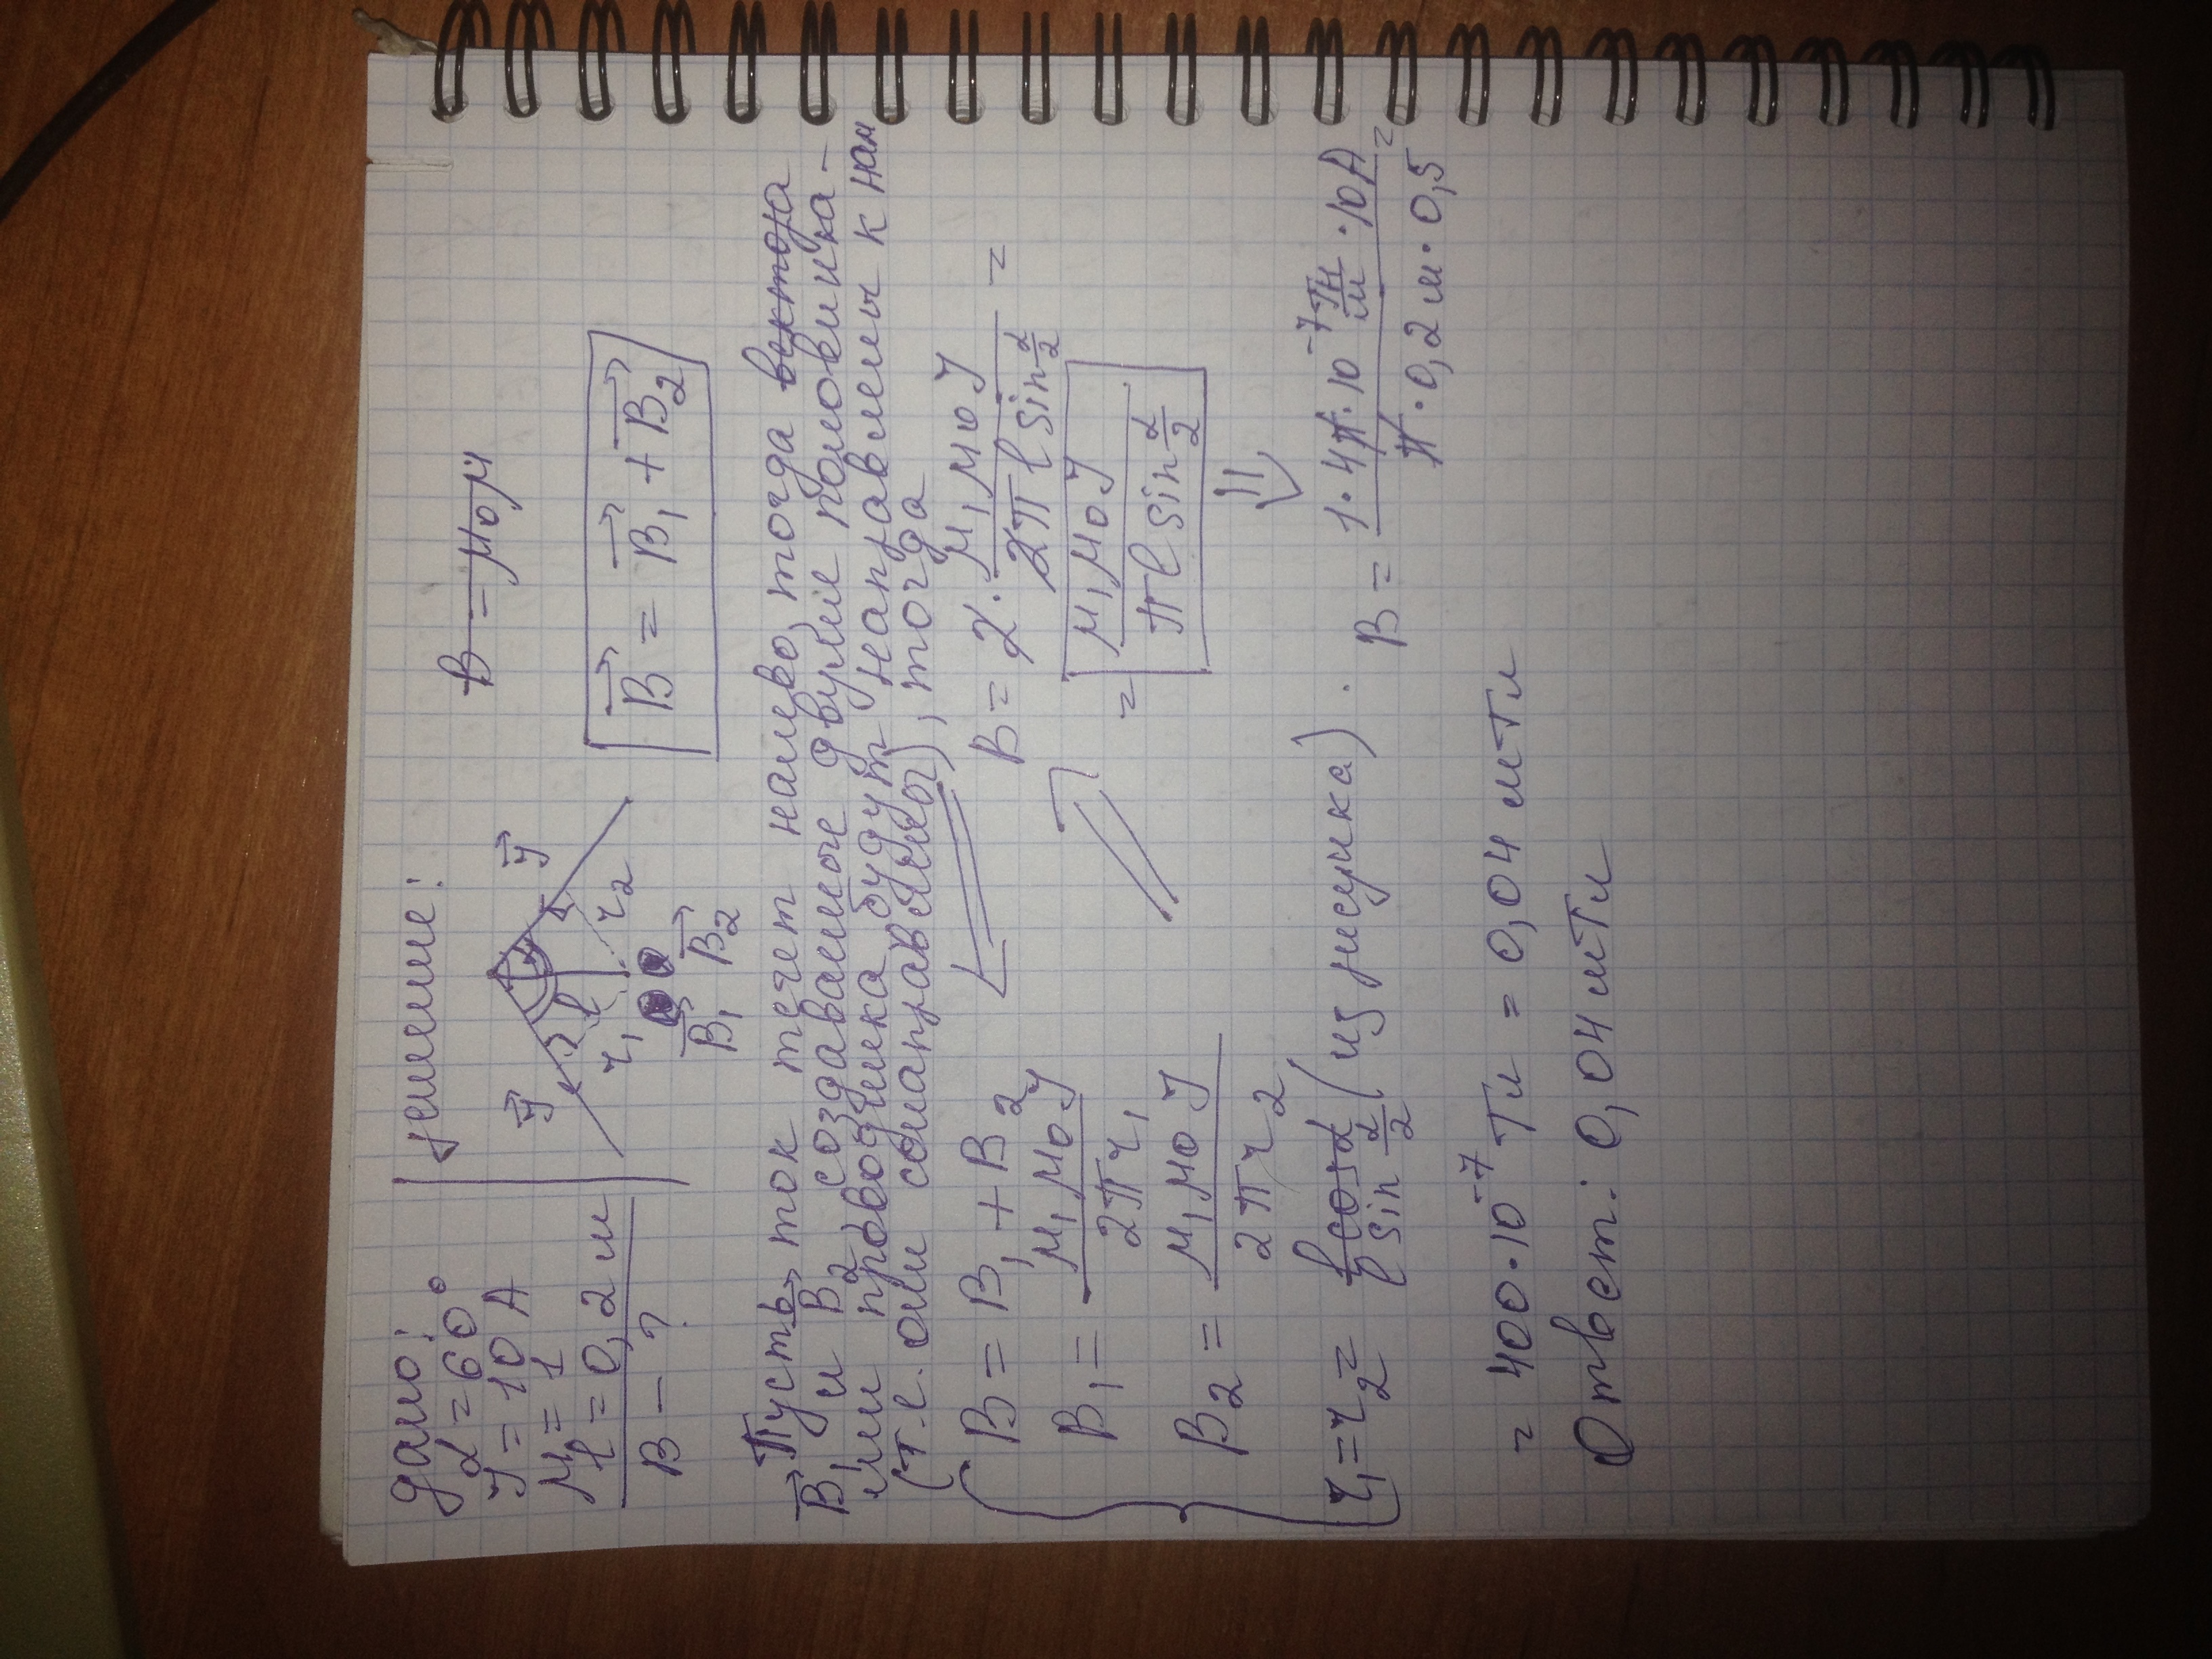 Дано:
α = 60°
J = 10 А
μ₁ = 1
l = 0,2 м
B – ?
Решение:
B = μ₀μ
J⃗
J⃗
l
r₁
r₂
B⃗₁
B⃗₂
B⃗ = B⃗₁ + B⃗₂
Пусть ток течет налево, тогда вектора
B⃗₁ и B⃗₂ создаваемые двумя половинка-
ми проводника будут направлены к нам
(т.е. они сонаправлены), тогда
B = B₁ + B₂
B₁ = μ₁μ₀J / 2πr₁
B₂ = μ₁μ₀J / 2πr₂
r₁ = r₂ = l cos α
l sin α/2 (из рисунка).
B = 2 · μ₁μ₀J / 2πl sin α/2 =
= μ₁μ₀J / πl sin α/2
⇓
B = 1 · 4π · 10⁻⁷ Гн/м · 10А / π · 0,2 м · 0,5 =
= 400 · 10⁻⁷ Тл = 0,04 мТл
Ответ: 0,04 мТл